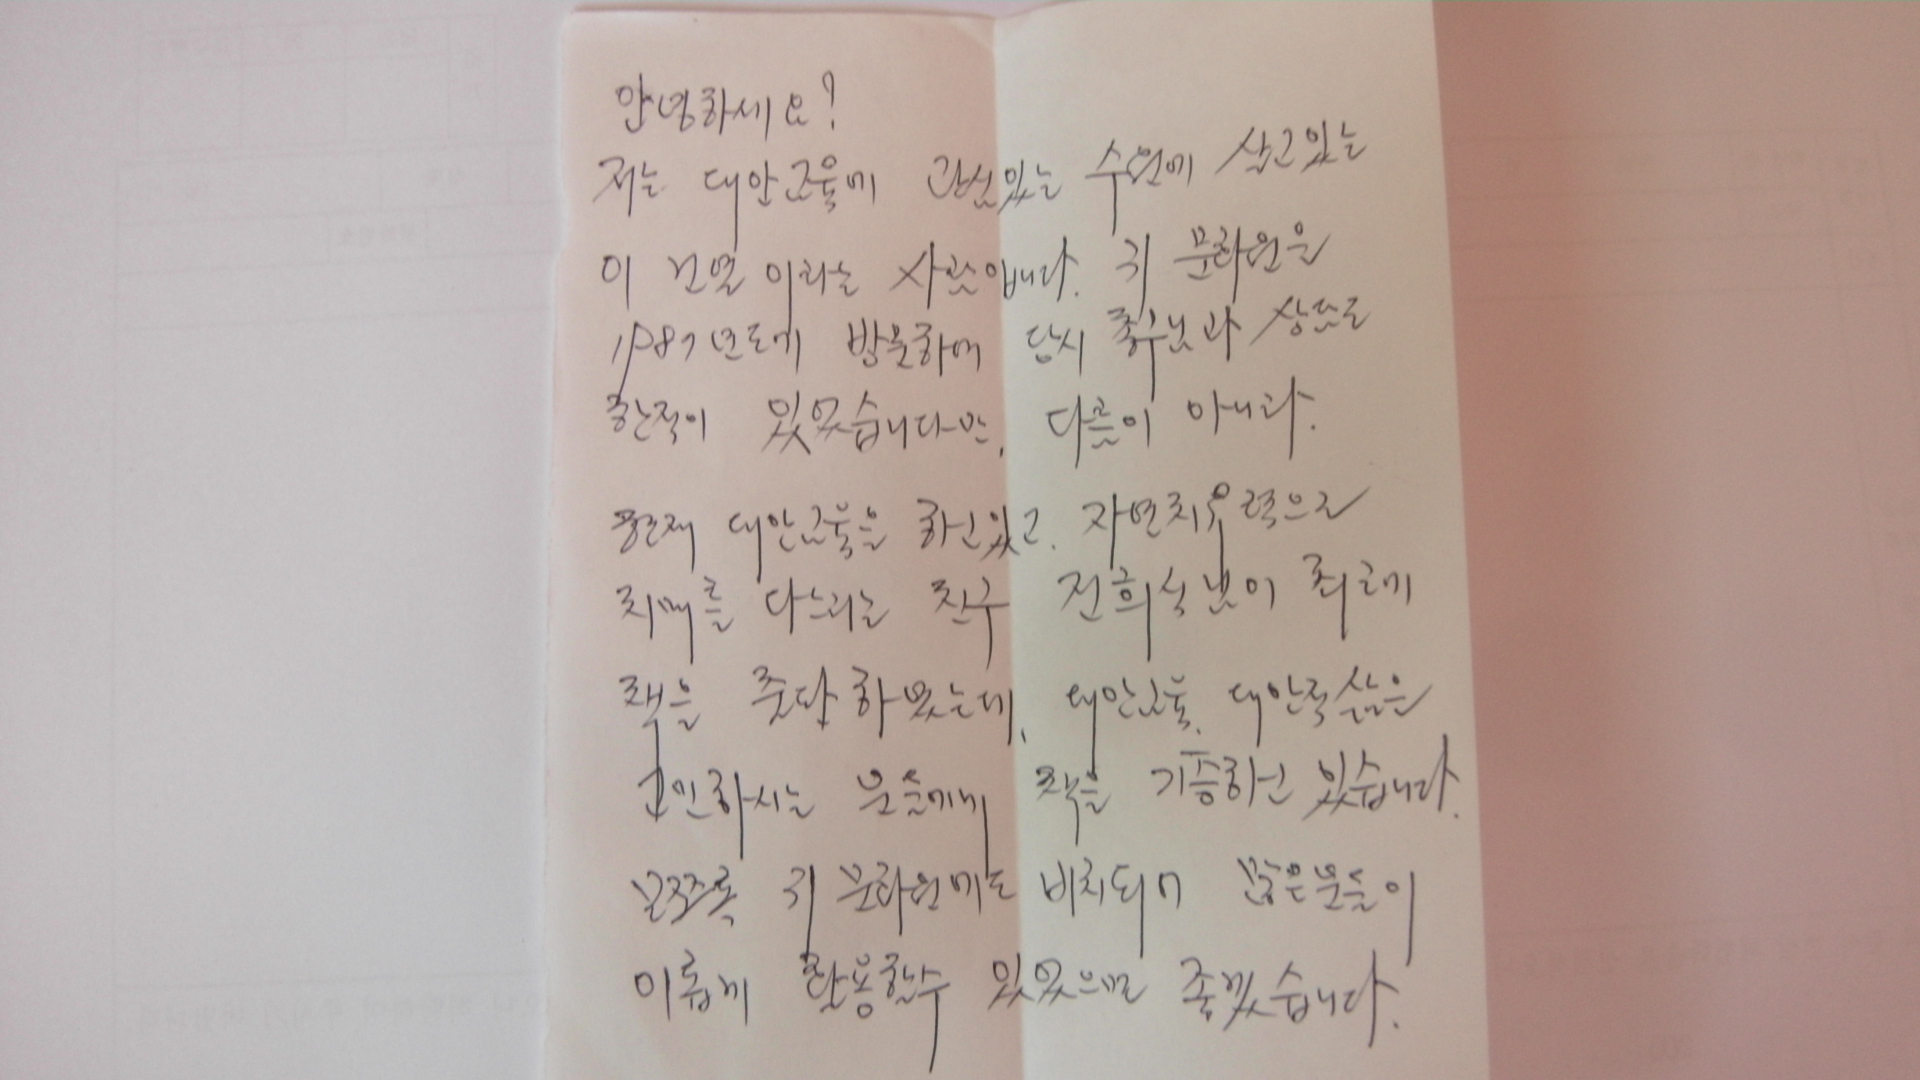 안녕하세요?
저는 대안교육에 관심있는 수원에 살고있는
이 건열 이라는 사람입니다. 귀 문화원은
1987년도에 방문하여 당시 총무님과 상담도
한적이 있었습니다만, 다름이 아니라.
현재 대안교육을 하고있고, 자연치유력으로
치매를 다스리는 친구 전희식님이 최근에
책을 출간 하였는데, 대안교육, 대안적삶을
고민하시는 분들에게 책을 기증하고 있습니다.
모쪼록 귀 문화원에도 비치되어 많은분들이
이롭게 활용할수 있었으면 좋겠습니다.